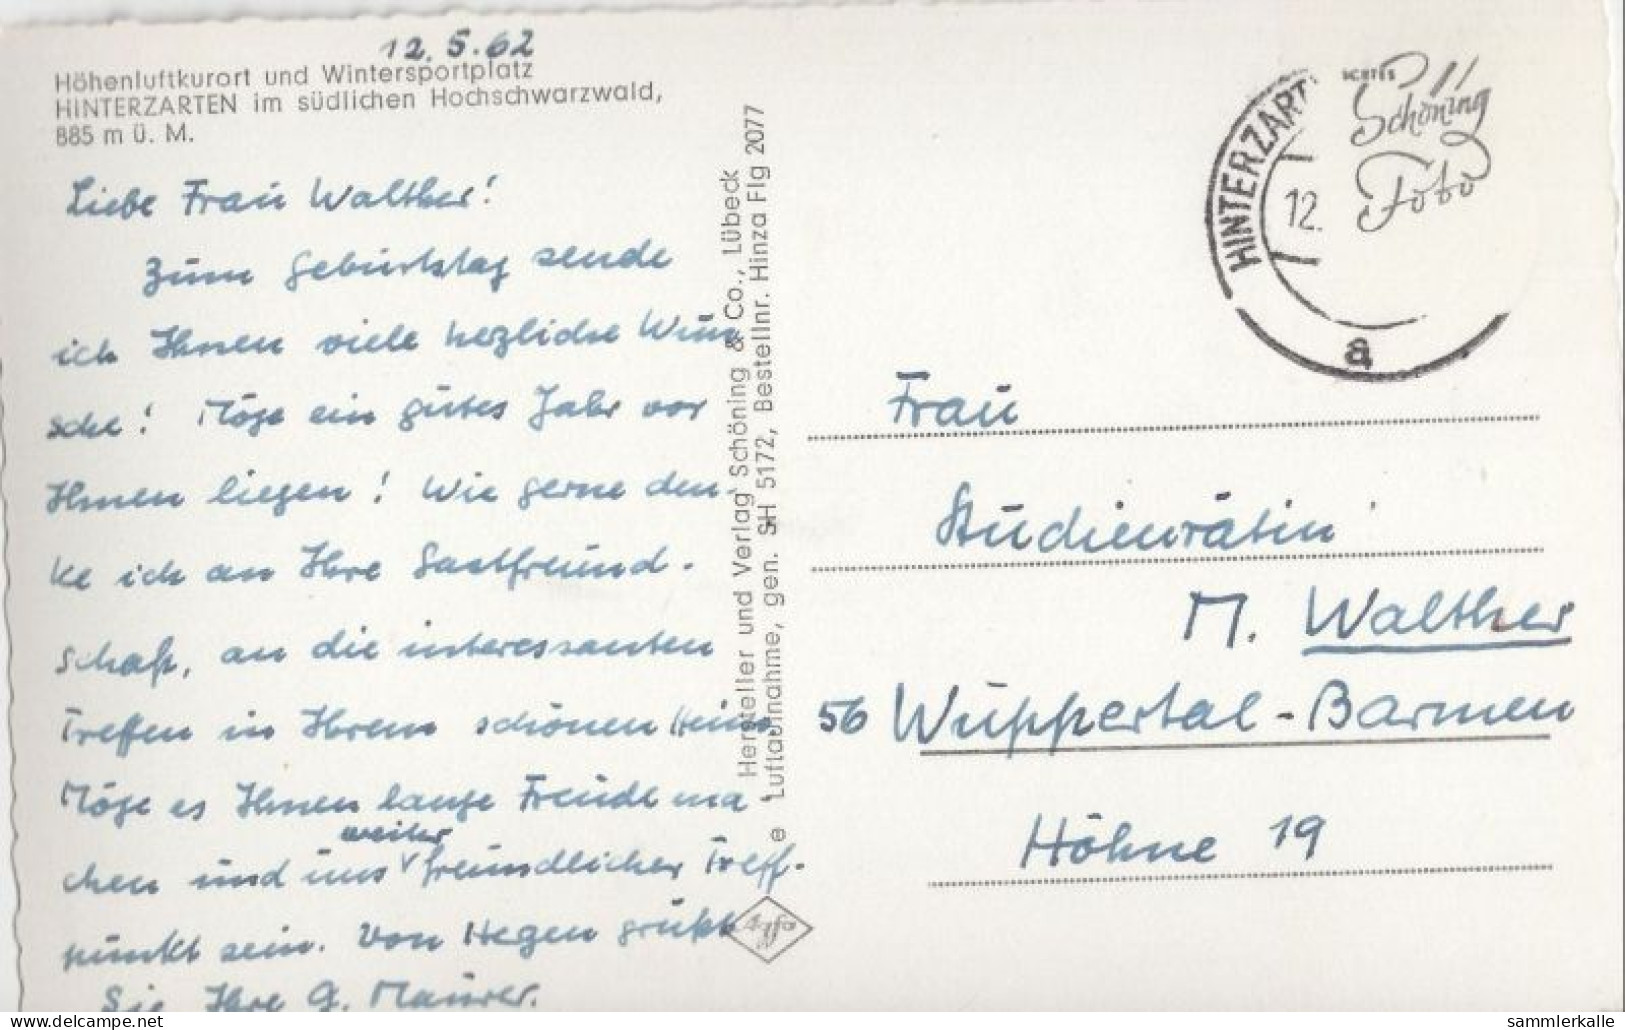 12.5.62
Höhenluftkurort und Wintersportplatz
HINTERZARTEN im südlichen Hochschwarzwald,
885 m ü. M.
Liebe Frau Walther!
Zum Geburtstag sende
ich Ihnen viele herzliche Wün
sche! Möge ein gutes Jahr vor
Ihnen liegen! Wie gerne den-
ke ich an Ihre Gastfreund-
schaft, an die interessanten
Treffen in Ihrem schönen Heim.
Möge es Ihnen lange Freude ma
weiter
chen und uns freundlicher Treff-
punkt sein. Von Hegen grüßt
Sie Ihre G. Maurer.
Hersteller und Verlag Schöning & Co., Lübeck
Luftaufnahme, gen. SH 5172, Bestellnr. Hinza Flg 2077
e
Agfa
HINTERZART
12.
a
ECHTES
Schöning
Foto
Frau
Studienrätin
M. Walther
56 Wuppertal-Barmen
Höhne 19
www.delcampe.net
sammlerkalle